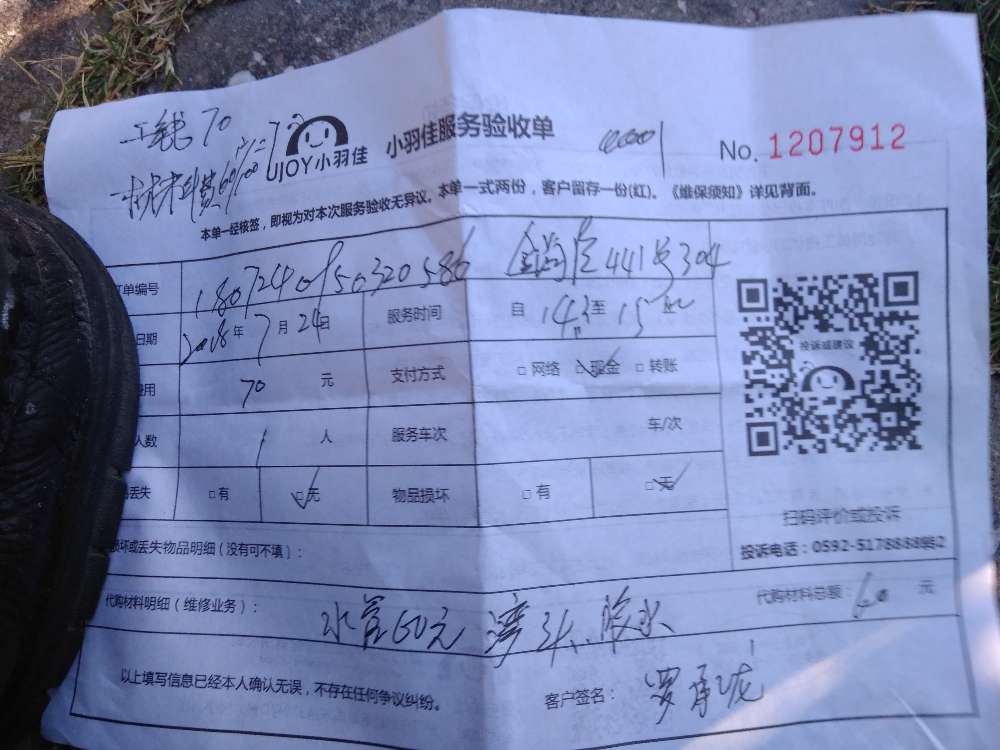 工钱70
材料费60
UJOY小羽佳 小羽佳服务验收单 No. 1207912
本单一经核签，即视为对本次服务验收无异议。本单一式两份，客户留存一份(红)。《维保须知》详见背面。
订单编号 1807240950320586 441号304
日期 2018年7月24日 服务时间 自 14 至 15
费用 70 元 支付方式 □网络 □现金 □转账
人数 1 人 服务车次 车/次
丢失 □有 □无 物品损坏 □有 □无
投诉或建议
扫码评价或投诉
投诉电话：0592-5178888转2
损坏或丢失物品明细（没有可不填）：
代购材料明细（维修业务）： 水管60元 弯头 胶水 代购材料总额：60 元
以上填写信息已经本人确认无误，不存在任何争议纠纷。 客户签名：